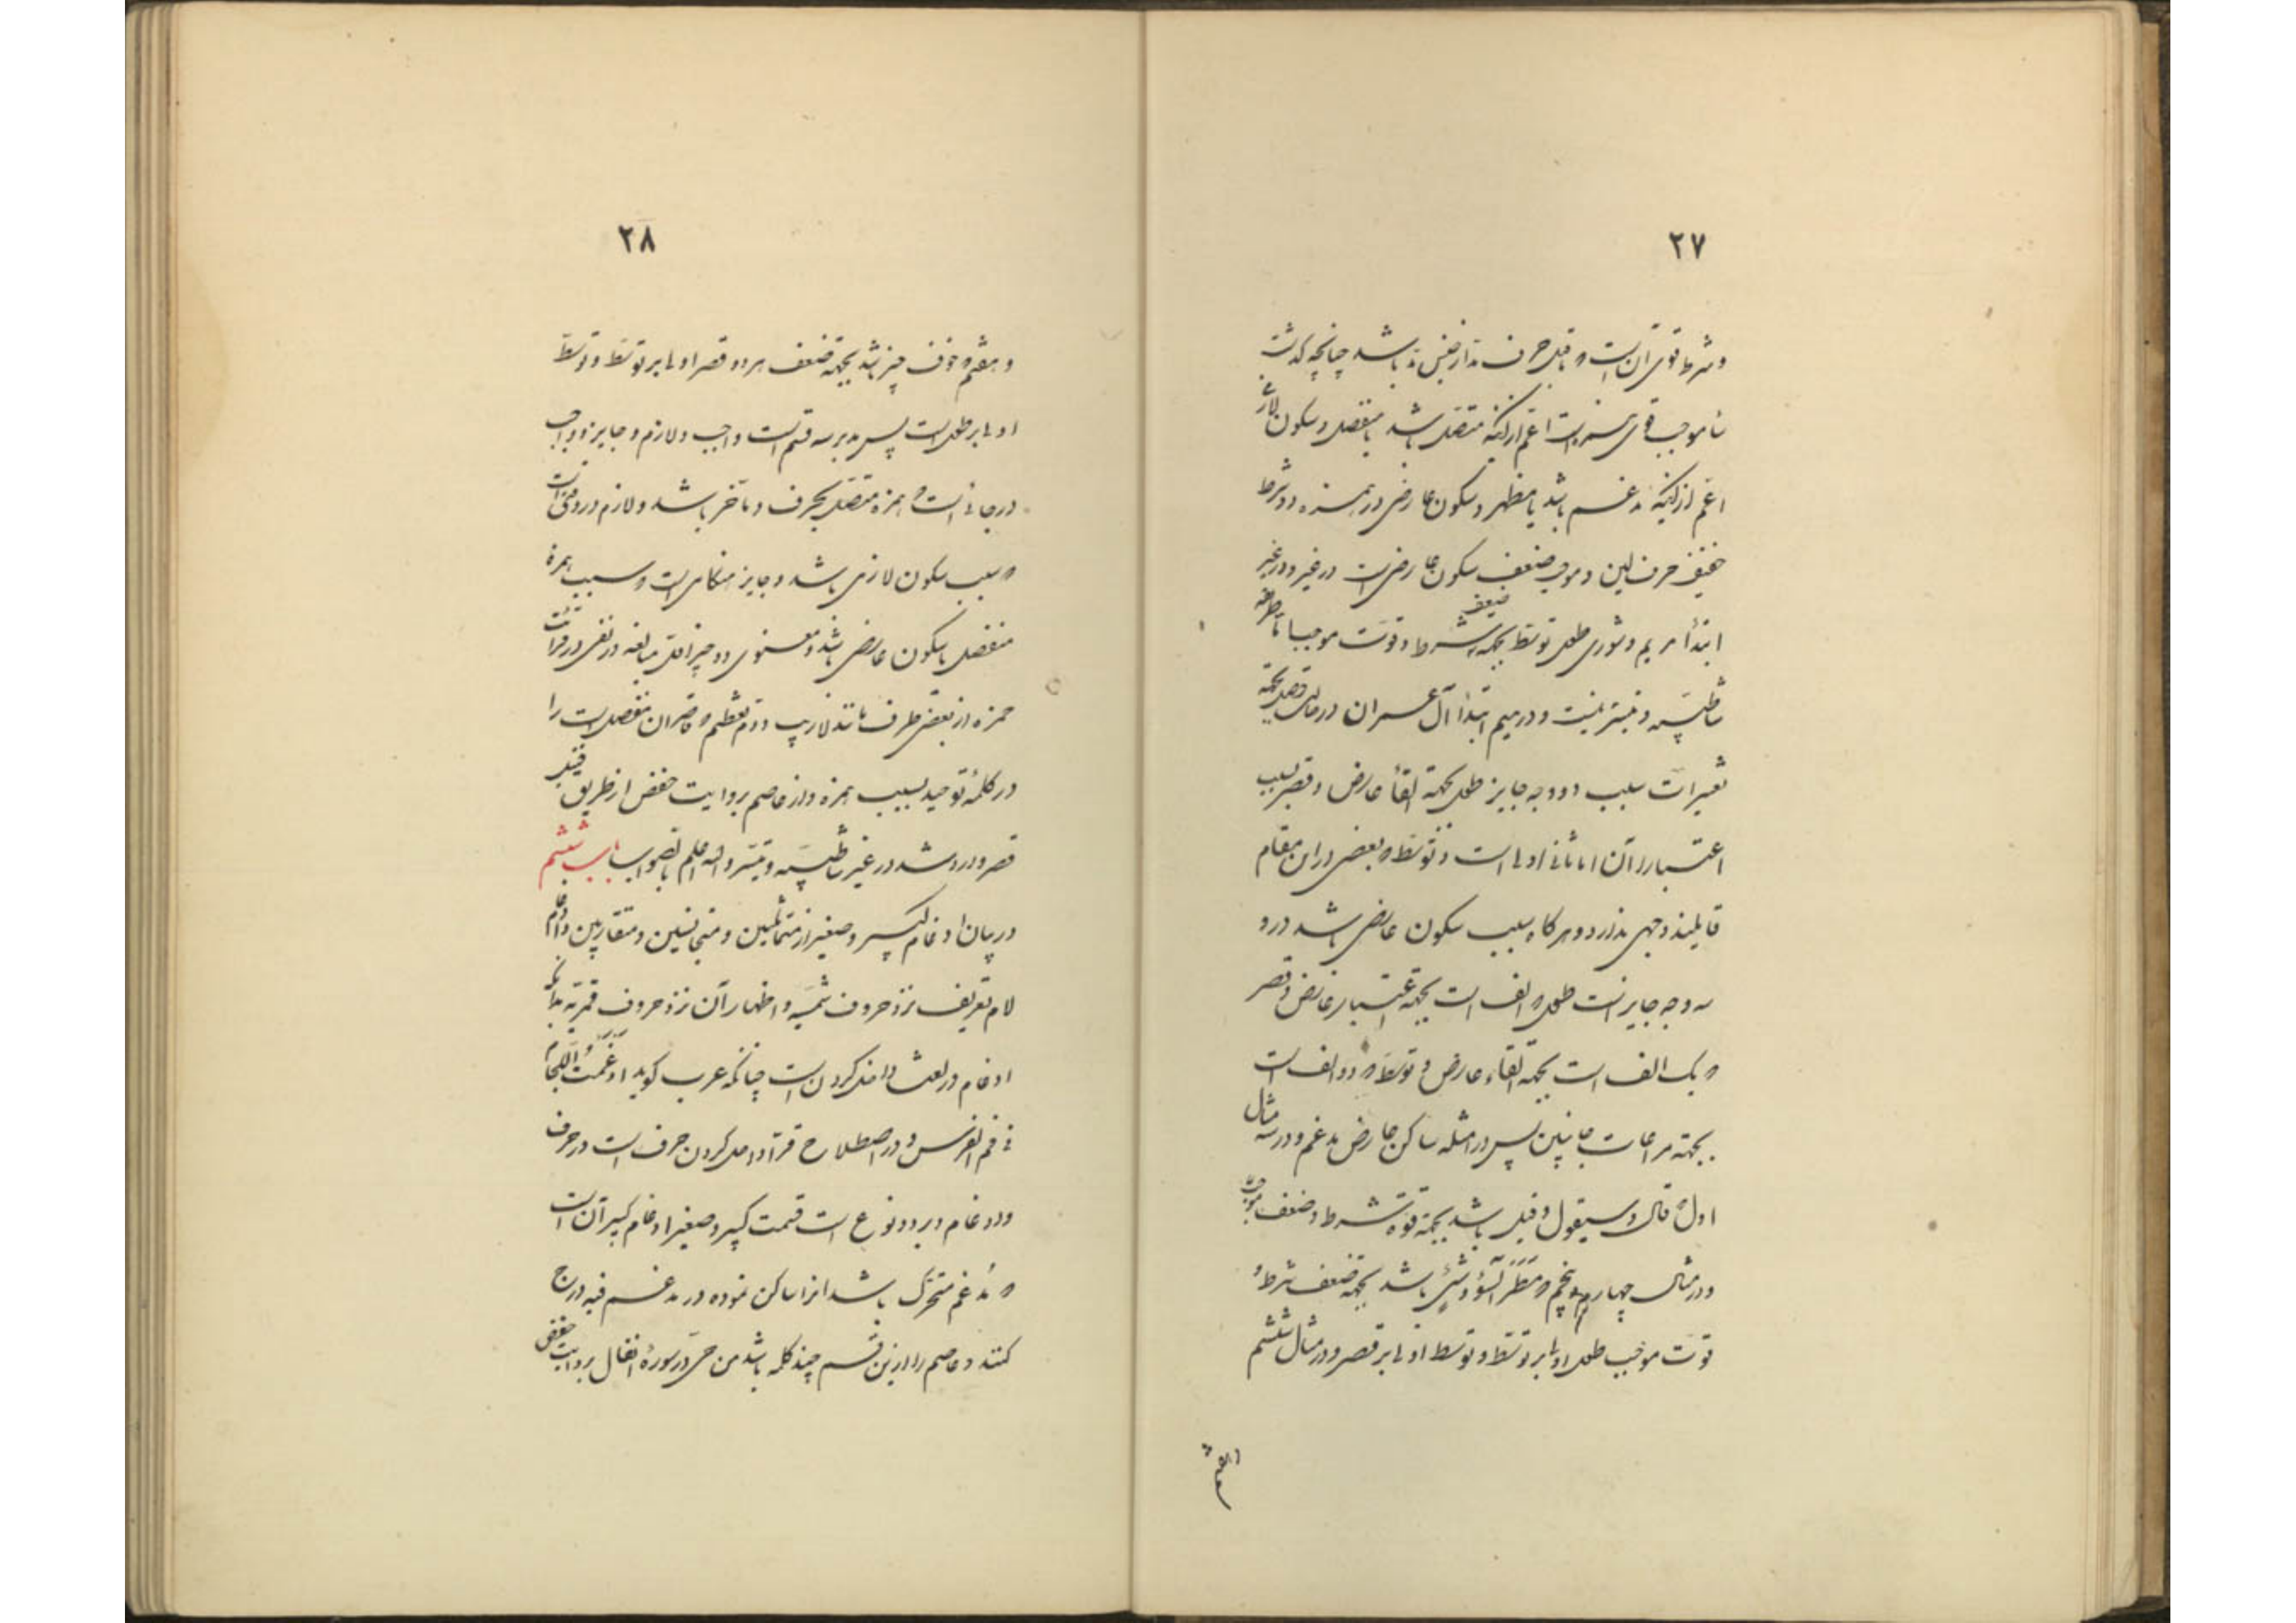 ۲۷
و شرط قوی آن است که ماقبل حرف مد از جنس مد باشد چنانچه گذشت
اما موجب قوی همزه است اعم از اینکه متصل باشد یا منفصل و سکون لازمی
اعم از اینکه مدغم باشد یا مظهر و سکون عارضی در همزه و شرط
ضعیف حرف لین و موجب ضعیف سکون عارضی است در غیر و در غیر
ابتدأ مریم و شوری طول توسط بجهة ضعیف شرط و قوت موجب اما طریقه
شاطبیه و تیسر نیست و در میم ابتدأ آل عمران در حالت وصل بجهة
تغییرات سبب دو وجه جایز طول بجهة القأ عارض و قصر بسبب
اعتبار آن اما ثانی اولی است و توسط که بعضی در این مقام
قایلند وجهی ندارد و هر گاه سبب سکون عارضی باشد در او
سه وجه جایز است طول که الف است بجهة اعتبار عارض و قصر
که یک الف است بجهة القاء عارض و توسط که دو الف است
بجهة مراعات جانبین پس در امثله ساکن عارض مدغم و در سه مثال
اول که قال و سیقول و قیل باشد بجهة قوة شرط و ضعف موجب
و در مثال چهارم و پنجم که مَطَرَ السَّوْءِ و شَیْءٍ باشد بجهة ضعف شرط و
قوت موجب طول اولی بر توسط و توسط اولی بر قصر و در مثال ششم
۲۸
و هفتم که خوف چیز باشد بجهة ضعف هر دو قصر اولی بر توسط و توسط
اولی بر طول است پس مد بر سه قسم است واجب و لازم و جایز و واجب
در جائی است که همزه متصل بحرف مد مأخر باشد و لازم در وقتی است
که سبب سکون لازمی باشد و جایز هنگامی است که سبب همزه
منفصل یا سکون عارضی باشد و معنوی دو چیز اول مبالغه در نفی در قرائت
حمزه از بعضی طرف مانند لا ریب و دوم تعظیم که قاصران منفصل است را
در کلمهٔ توحید بسبب همزه و از عاصم بروایت حفص از طریق فیل
قصر وارد شد در غیر شاطبیه و تیسر و الله اعلم بالصواب باب ششم
در بیان ادغام کبیر و صغیر از متماثلین و متجانسین و متقاربین و ادغام
لام تعریف نزد حروف شمسیه و اظهار آن نزد حروف قمریه بدانکه
ادغام در لغت داخل کردن است چنانکه عرب گوید اَدْغَمْتُ اللِّجَامَ
فی فم الفرس و در اصطلاح قرّا داخل کردن حرف است در حرف
و ادغام بر دو نوع است قسمت کبیر و صغیر ادغام کبیر آن است
که مُدغم متحرک باشد انرا ساکن نموده در مدغم فیه درج
کنند و عاصم را از این قسم چند کلمه باشد من حیّ در سورهٔ انفال بروایت حفص